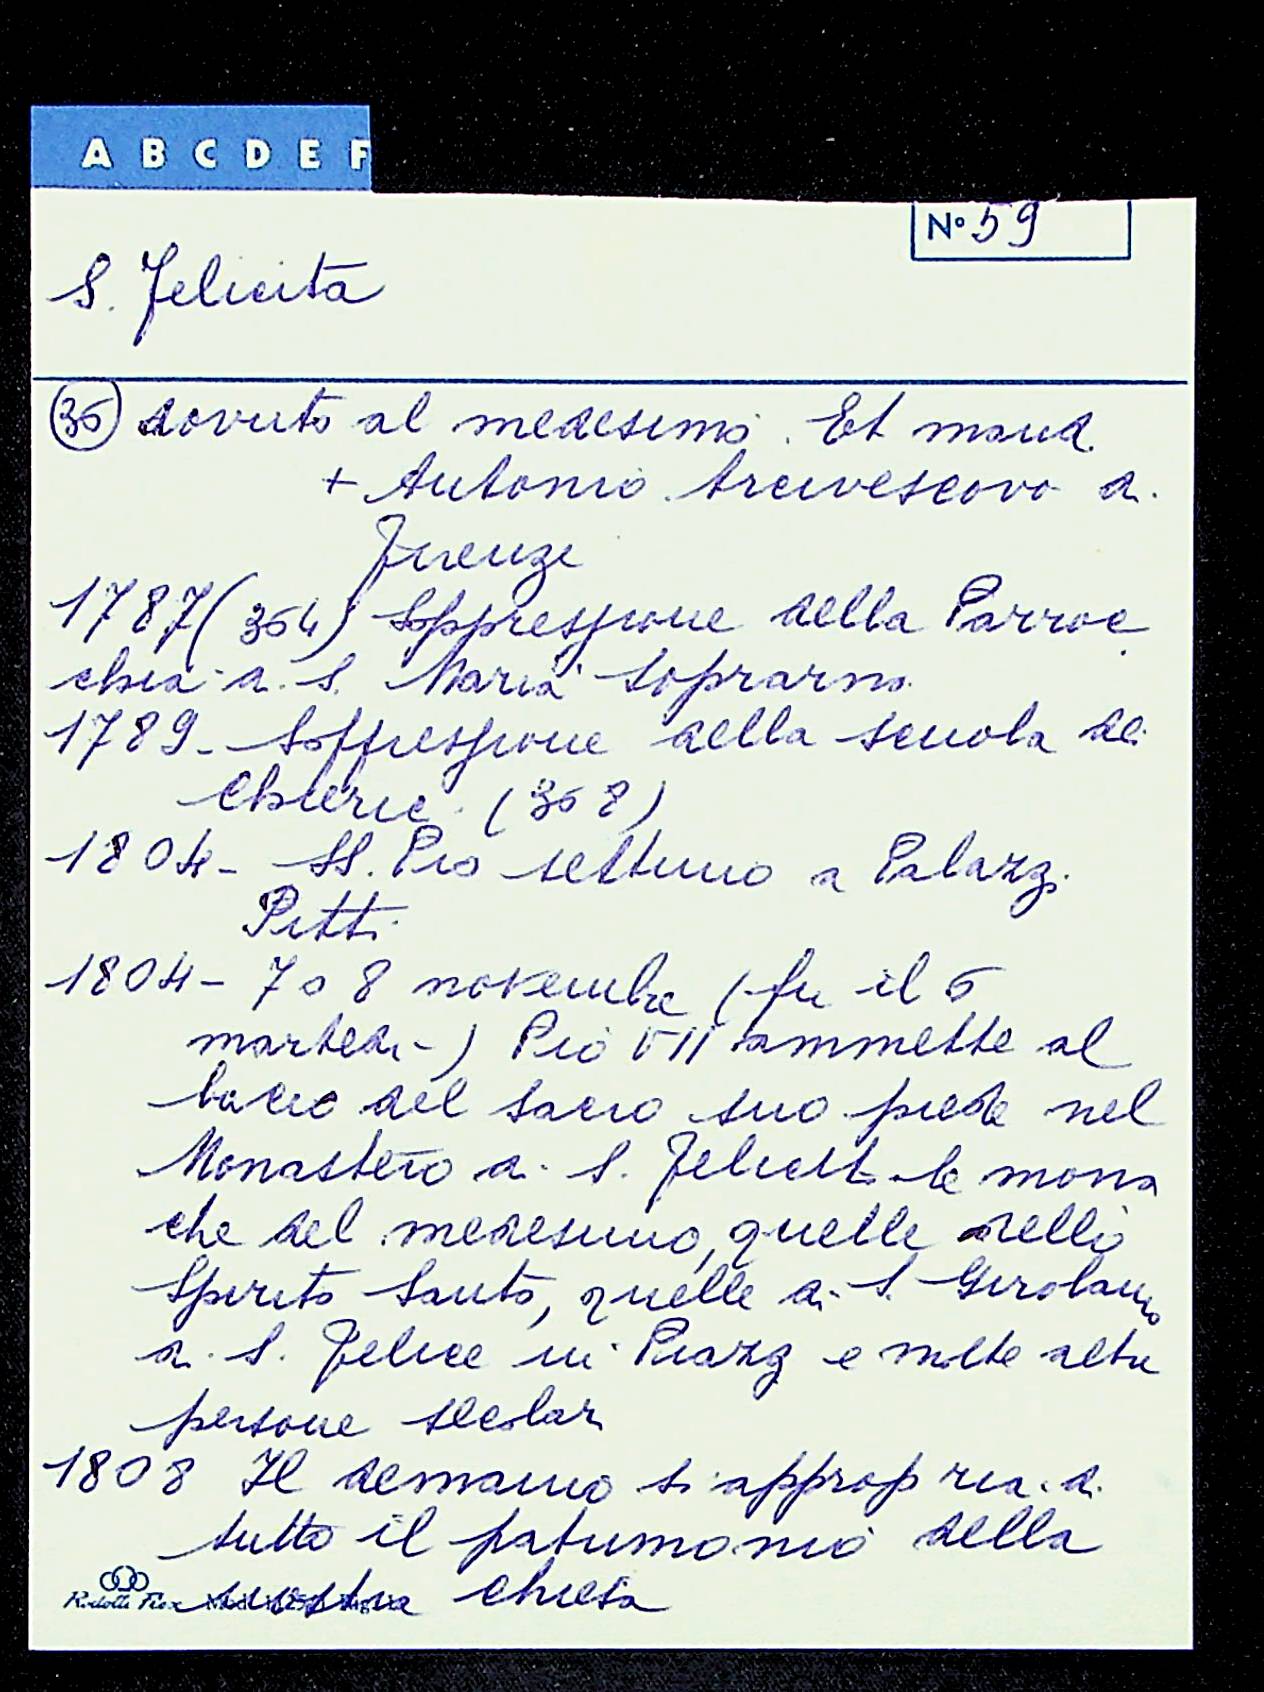 A B C D E F
N° 59
S. Felicita
(36) dovuto al medesimo. Et mand.
+ Antonio Arcivescovo di
Firenze
1787 (364) Soppressione della Parroc
chia di S. Maria Soprarno
1789 - Soppressione della scuola dei
Chierici (368)
1804 - SS. Pio settimo a Palazzo
Pitti
1804 - 7 o 8 novembre (fu il 6
martedì -) Pio VII ammette al
bacio del sacro suo piede nel
Monastero di S. Felicita le mona
che del medesimo, quelle dello
Spirito Santo, quelle di S. Girolamo
di S. Felice in Piazza e molte altre
persone secolari
1808 Il demanio si appropria di
tutto il patrimonio della
nostra chiesa